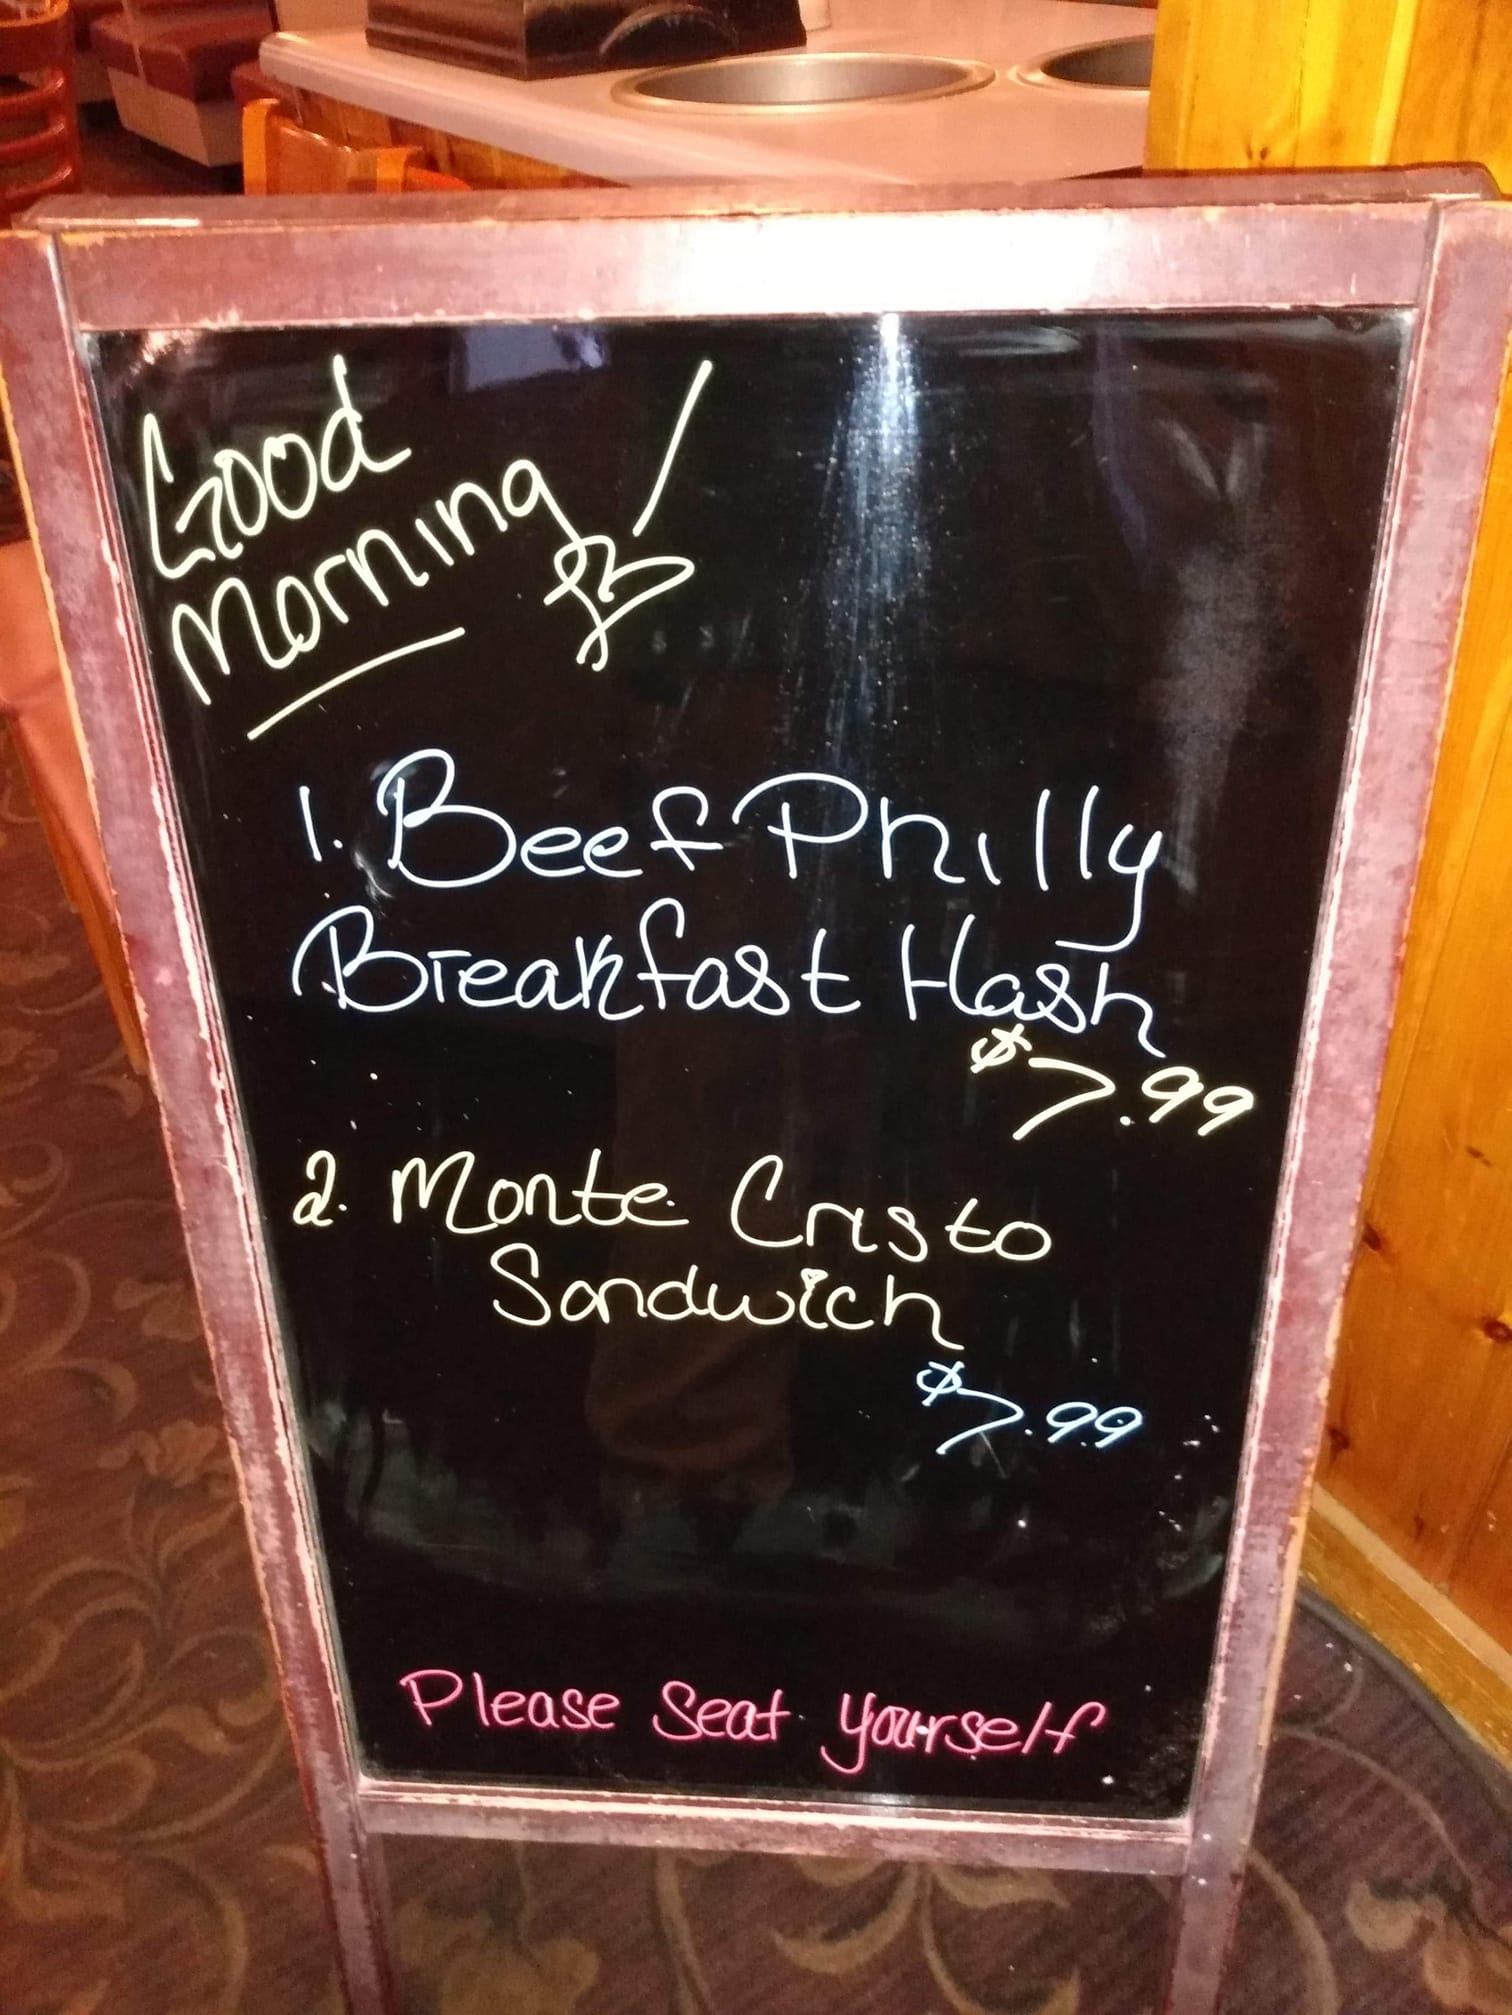 Good
Morning!
1. Beef Philly
Breakfast Hash
$7.99
2. Monte Cristo
Sandwich
$7.99
Please Seat yourself